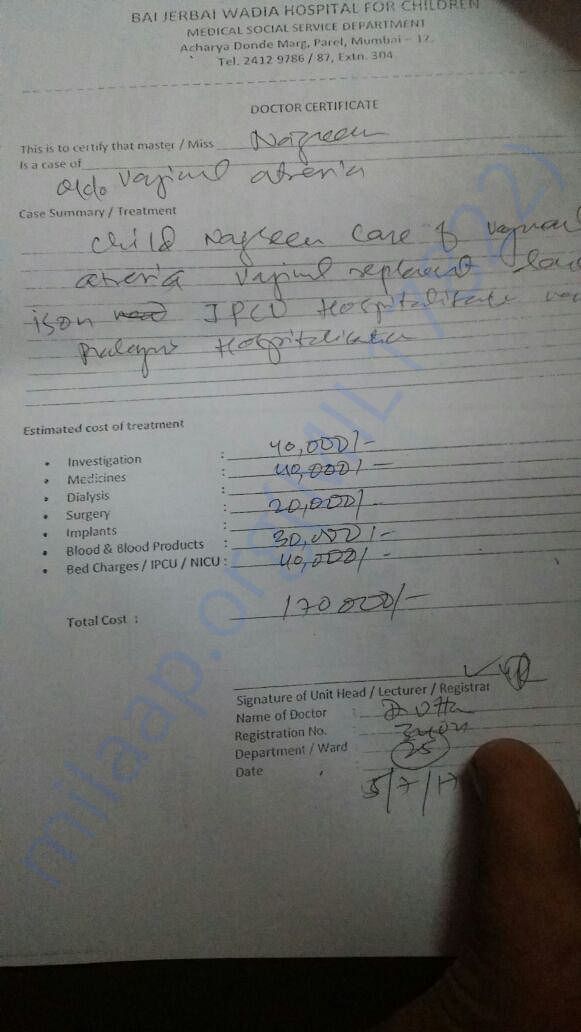 BAI JERBAI WADIA HOSPITAL FOR CHILDREN
MEDICAL SOCIAL SERVICE DEPARTMENT
Acharya Donde Marg, Parel, Mumbai – 12.
Tel. 2412 9786 / 87, Extn. 304
DOCTOR CERTIFICATE
This is to certify that master / Miss Nazreen
Is a case of
vaginal atresia
Case Summary / Treatment
child Nazreen Case of
atresia vaginal
IPCU
Hospitalisation
Estimated cost of treatment
• Investigation : 40,000/-
• Medicines : 40,000/-
• Dialysis :
• Surgery : 20,000/-
• Implants :
• Blood & Blood Products : 30,000/-
• Bed Charges / IPCU / NICU : 40,000/-
Total Cost : 170000/-
Signature of Unit Head / Lecturer / Registrar
Name of Doctor :
Registration No. :
Department / Ward : 25
Date : 5/7/17
milaap.org